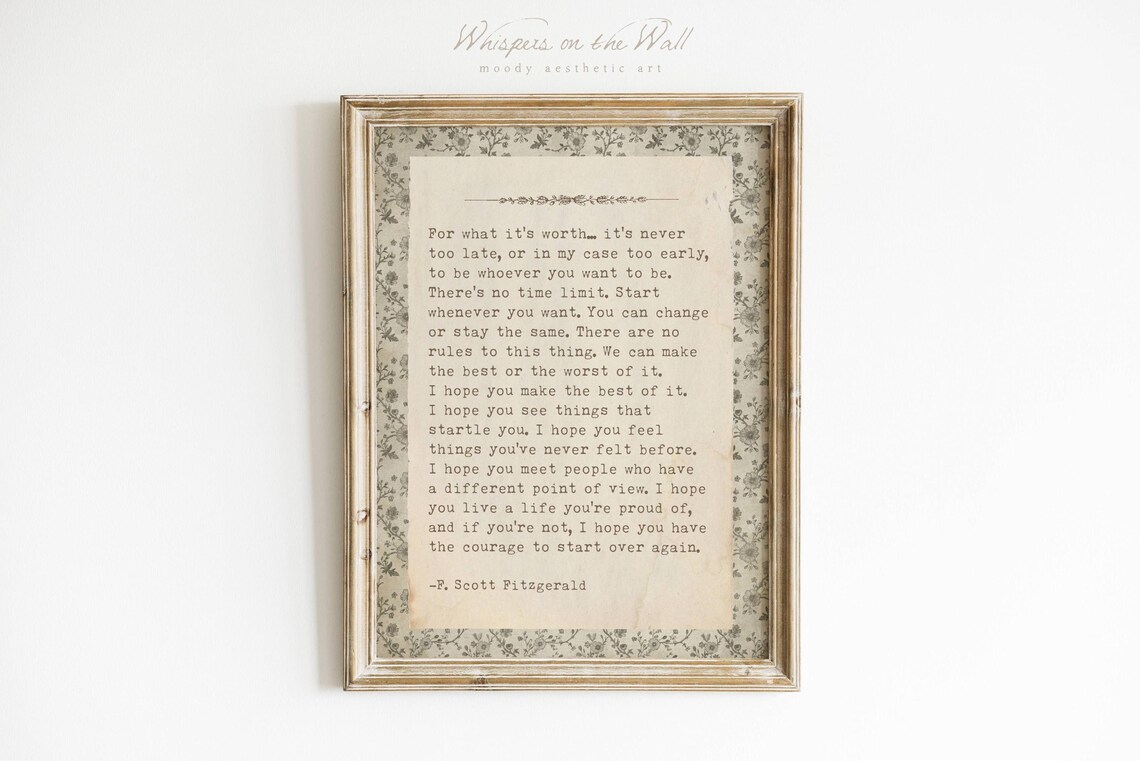 Whispers on the Wall
moody aesthetic art
For what it's worth... it's never
too late, or in my case too early,
to be whoever you want to be.
There's no time limit. Start
whenever you want. You can change
or stay the same. There are no
rules to this thing. We can make
the best or the worst of it.
I hope you make the best of it.
I hope you see things that
startle you. I hope you feel
things you've never felt before.
I hope you meet people who have
a different point of view. I hope
you live a life you're proud of,
and if you're not, I hope you have
the courage to start over again.
-F. Scott Fitzgerald